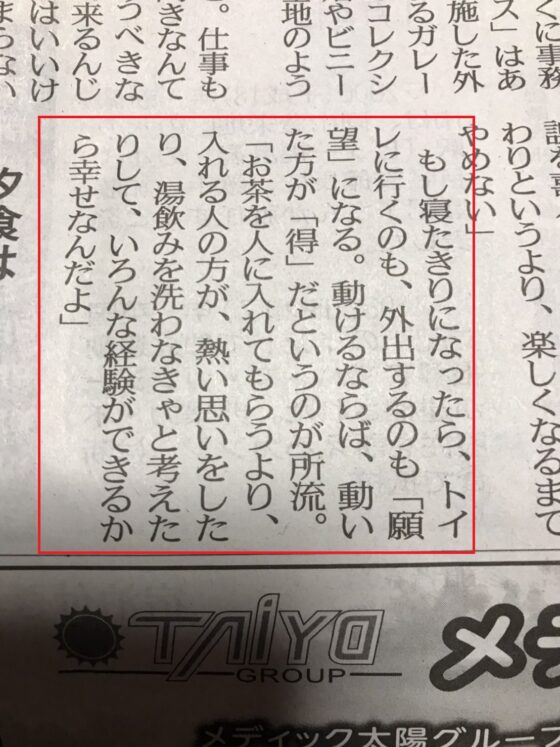 くに事務
ス」はあ
施した外
るガレー
コレクシ
やビニー
地のよう
。仕事も
きなんて
うべきな
来るんじ
はいいけ
まらない
わりというより、楽しくなるまで
やめない」
もし寝たきりになったら、トイ
レに行くのも、外出するのも「願
望」になる。動けるならば、動い
た方が「得」だというのが所流。
「お茶を人に入れてもらうより、
入れる人の方が、熱い思いをした
り、湯飲みを洗わなきゃと考えた
りして、いろんな経験ができるか
ら幸せなんだよ」
夕食は
TAIYO
GROUP
メデ
メディック太陽グループ